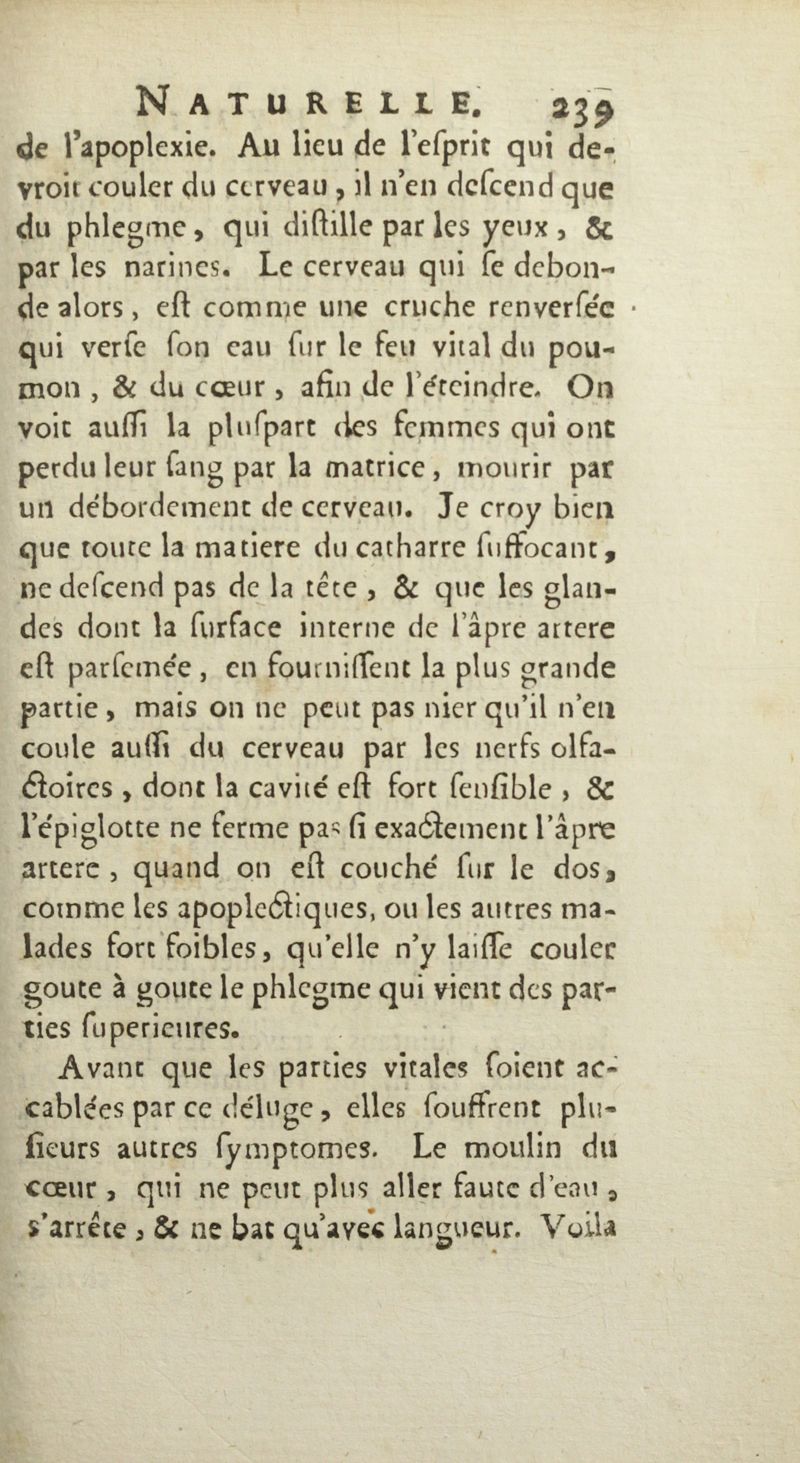 NATURELLE. 239
de l'apoplexie. Au lieu de l'eſprit qui de-
vroit couler du cerveau, il n'en deſcend que
du phlegme, qui diſtille par les yeux, &
par les narines. Le cerveau qui ſe debon-
de alors, eſt comme une cruche renverſée
qui verſe ſon eau ſur le feu vital du pou-
mon, & du cœur, afin de l'éteindre. On
voit auſſi la pluſpart des femmes qui ont
perdu leur ſang par la matrice, mourir par
un débordement de cerveau. Je croy bien
que toute la matiere du catharre ſuffocant,
ne deſcend pas de la tête, & que les glan-
des dont la ſurface interne de l'âpre artere
eſt parſemée, en fourniſſent la plus grande
partie, mais on ne peut pas nier qu'il n'en
coule auſſi du cerveau par les nerfs olfa-
ctoires, dont la cavité eſt fort ſenſible, &
l'épiglotte ne ferme pas ſi exactement l'âpre
artere, quand on eſt couché ſur le dos,
comme les apoplectiques, ou les autres ma-
lades fort foibles, qu'elle n'y laiſſe couler
goute à goute le phlegme qui vient des par-
ties ſuperieures.
Avant que les parties vitales ſoient ac-
cablées par ce déluge, elles ſouffrent plu-
ſieurs autres ſymptomes. Le moulin du
cœur, qui ne peut plus aller faute d'eau,
s'arrête, & ne bat qu'avec langueur. Voila